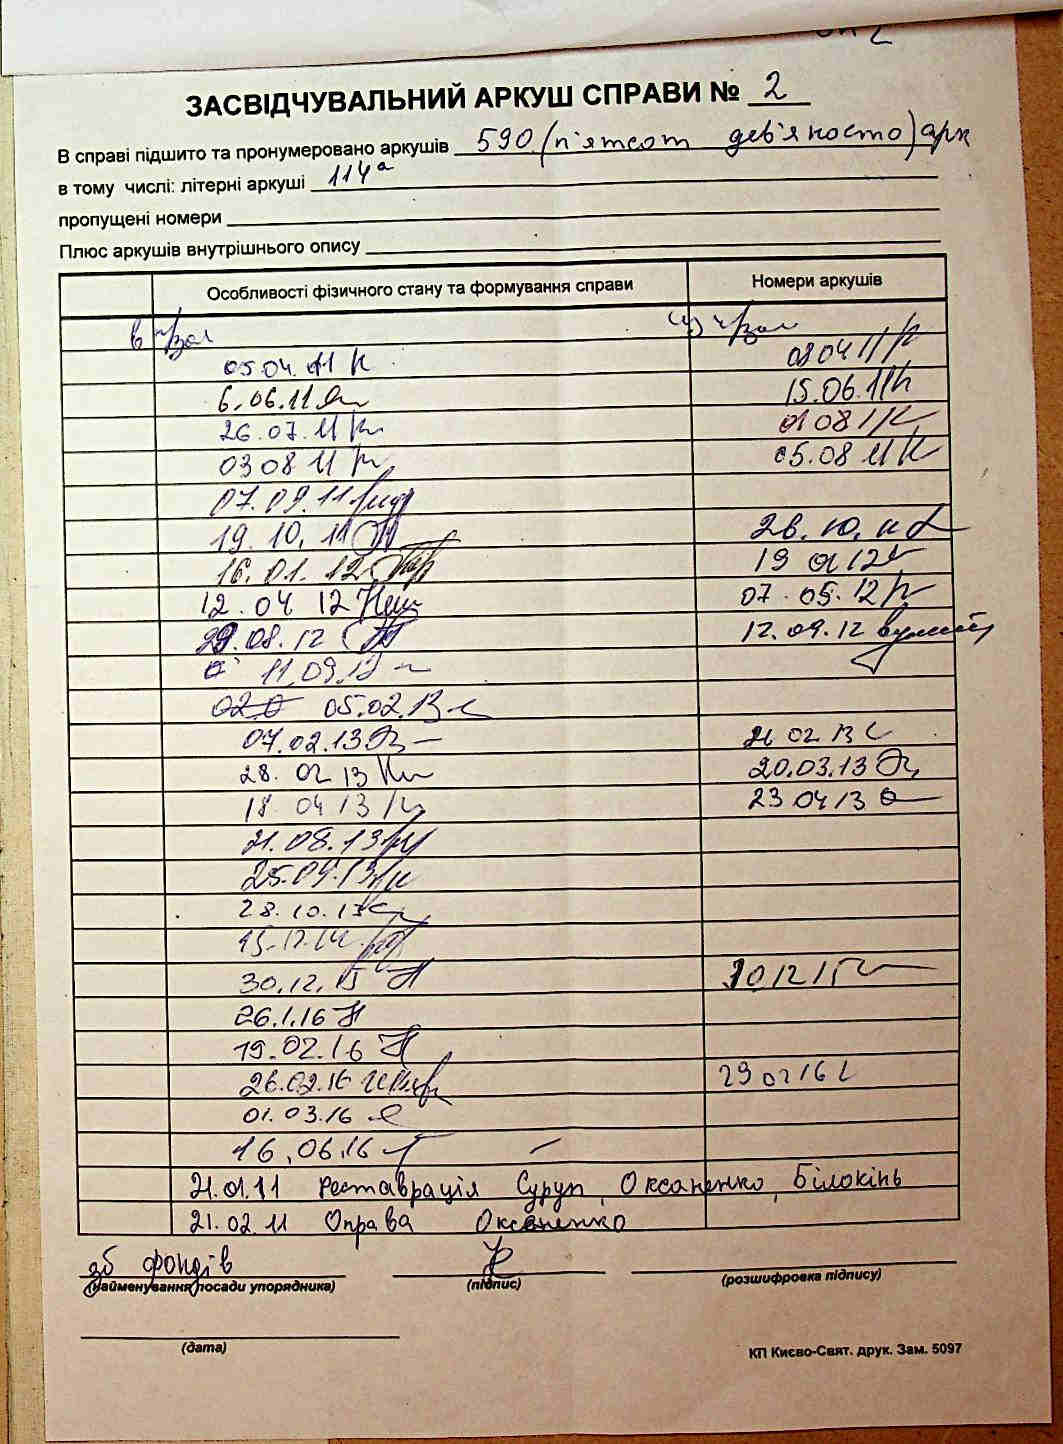 ЗАСВІДЧУВАЛЬНИЙ АРКУШ СПРАВИ № 2
В справі підшито та пронумеровано аркушів 590 (п'ятсот дев'яносто) арк
в тому числі: літерні аркуші 114а
пропущені номери
Плюс аркушів внутрішнього опису
Особливості фізичного стану та формування справи Номери аркушів
в ч/зал ч/зал
05.04.11 08 04 11
6.06.11 15.06.11
26.07.11 01 08 11
03 08 11 05.08 11
07.09.11
19.10.11 26.10.11
16.01.12 19 01 12
12.04 12 07.05.12
29.08.12 12.09.12
11.09.12
02.0 05.02.13
07.02.13 21 02 13
28.02 13 20.03.13
18.04 13 23 04 13
21.08.13
25.09.13
28.10.13
15.12.14
30.12.15 30 12 15
26.1.16
19.02.16
26.02.16 29 02 16
01.03.16
16.06.16
21.01.11 Реставрація Суруп, Оксаненко, Білокінь
21.02.11 Оправа Оксаненко
зб фондів
(найменування посади упорядника) (підпис) (розшифровка підпису)
(дата)
КП Києво-Свят. друк. Зам. 5097